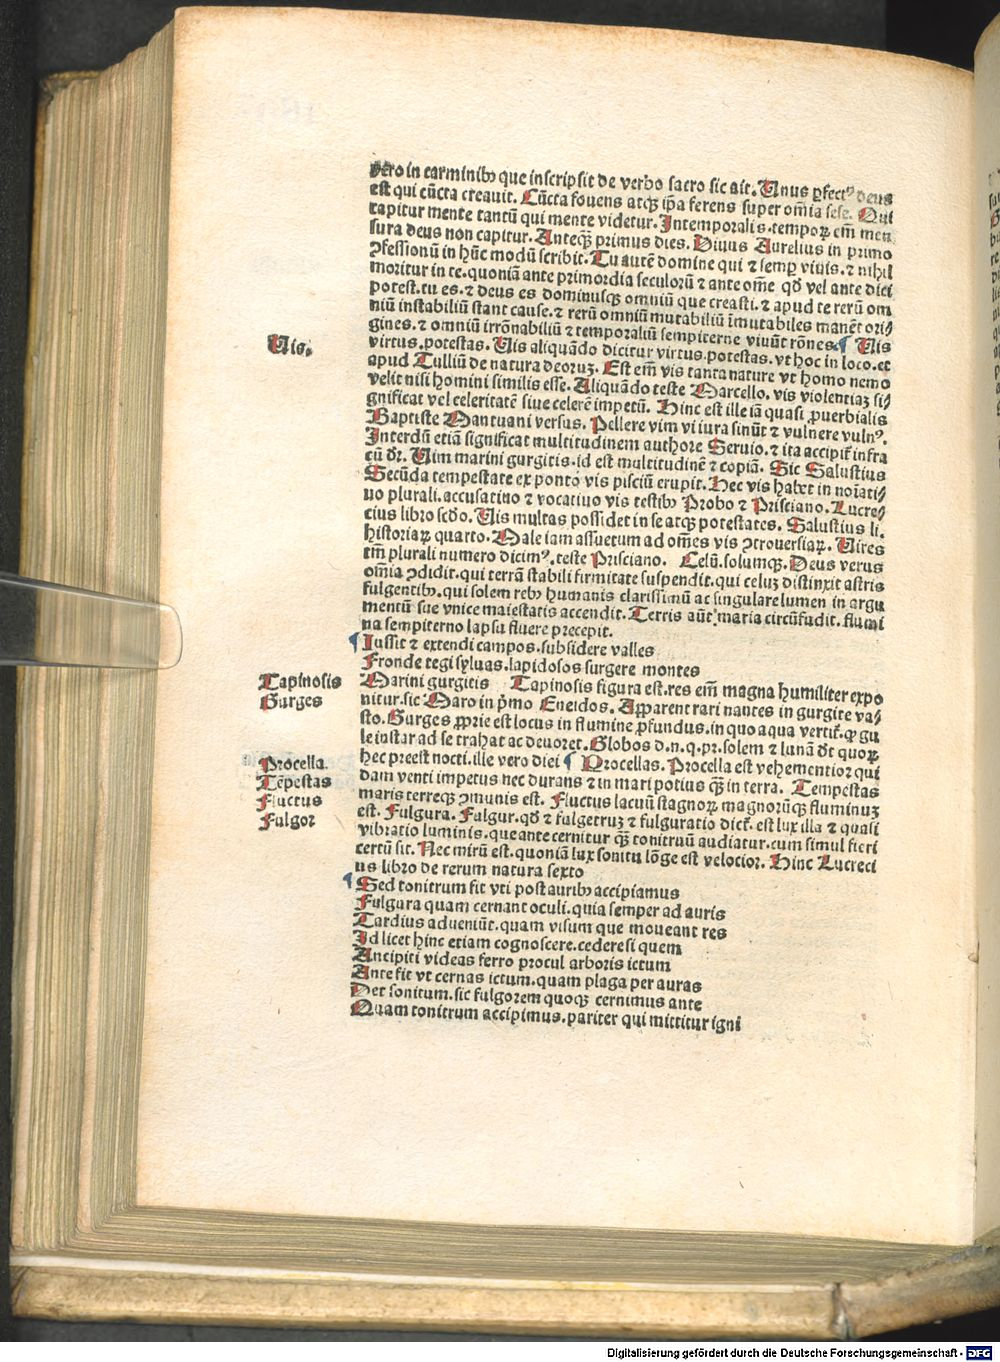 vero in carminibꝫ que inscripsit de verbo sacro sic ait. Unus ꝑfectꝰ deus
est qui cūcta creauit. Cūcta fouens atqꝫ ip̄a ferens super om̄ia sese. Qui
capitur mente tantū qui mente videtur. Intemporalis. tempoꝝ em̄ men
sura deus non capitur. Anteqꝫ primus dies. Diuus Aurelius in primo
ꝯfessionū in hūc modū scribit. Tu autē domine qui ⁊ semꝑ viuis. ⁊ nihil
moritur in te. quoniā ante primordia seculorū ⁊ ante om̄e qđ vel ante dici
potest. tu es. ⁊ deus es dominusqꝫ omniū que creasti. ⁊ apud te rerū om
niū instabiliū stant cause. ⁊ rerū omniū mutabiliū īmutabiles manēt ori⸗
gines. ⁊ omniū irrōnabiliū ⁊ temporaliū sempiterne viuūt rōnes. ¶ Uis
Uis.
virtus. potestas. Uis aliquādo dicitur virtus. potestas. vt hoc in loco. et
apud Tulliū de natura deoruꝫ. Est em̄ vis tanta nature vt homo nemo
velit nisi homini similis esse. Aliquādo teste Marcello. vis violentiaꝫ si⸗
gnificat vel celeritatē siue celerē impetū. Hinc est ille iā quasi ꝓuerbialis
Baptiste Mantuani versus. Pellere vim vi iura sinūt ⁊ vulnere vulnꝰ.
Interdū etiā significat multitudinem authore Seruio. ⁊ ita accipit̄ infra
cū dr̄. Uim marini gurgitis. id est multitudinē ⁊ copiā. Sic Salustius
Secūda tempestate ex ponto vis pisciū erupit. Hec vis habet in noīati⸗
uo plurali. accusatiuo ⁊ vocatiuo vis testibꝫ Probo ⁊ Prisciano. Lucre⸗
cius libro scdo. Uis multas possidet in se atqꝫ potestates. Salustius li.
historiaꝝ quarto. Male iam assuetum ad om̄es vis ꝯtrouersiaꝝ. Uires
tm̄ plurali numero dicimꝰ. teste Prisciano. Celū. solumqꝫ. Deus verus
om̄ia ꝯdidit. qui terrā stabili firmitate suspendit. qui celuꝫ distinxit astris
fulgentibꝫ. qui solem rebꝫ humanis clarissimū ac singulare lumen in argu
mentū sue vnice maiestatis accendit. Terris aūt maria circūfudit. flumi
na sempiterno lapsu fluere precepit.
¶ Iussit ⁊ extendi campos. subsidere valles
Fronde tegi syluas. lapidosos surgere montes
Tapinosis
Marini gurgitis Tapinosis figura est. res em̄ magna humiliter expo
Gurges
nitur. sic Maro in pͥmo Eneidos. Apparent rari nantes in gurgite va⸗
sto. Gurges ꝓprie est locus in flumine ꝓfundus. in quo aqua vertit̄. qꝫ gu
le instar ad se trahat ac deuoret. Globos d. n. q. pr. solem ⁊ lunā ōt quoꝝ
Procella.
hec preest nocti. ille vero diei ¶ Procellas. Procella est vehementior qui
Tēpestas
dam venti impetus nec durans ⁊ in mari potius qꝫ in terra. Tempestas
Fluctus
maris terreqꝫ ꝯmunis est. Fluctus lacuū stagnoꝝ magnorūqꝫ fluminuꝫ
Fulgor
est. Fulgura. Fulgur. qđ ⁊ fulgetruꝫ ⁊ fulguratio dict̄. est lux illa ⁊ quasi
vibratio luminis. que ante cernitur qꝫ tonitruū audiatur. cum simul fieri
certū sit. Nec mirū est. quoniā lux sonitu lōge est velocior. Hinc Lucreci
us libro de rerum natura sexto
¶ Sed tonitrum fit vti post auribꝫ accipiamus
Fulgura quam cernant oculi. quia semper ad auris
Tardius adueniūt. quam visum que moueant res
Id licet hinc etiam cognoscere. cederesi quem
Ancipiti videas ferro procul arboris ictum
Ante fit vt cernas ictum. quam plaga per auras
Det sonitum. sic fulgorem quoqꝫ cernimus ante
Quam tonitrum accipimus. pariter qui mittitur igni
Digitalisierung gefördert durch die Deutsche Forschungsgemeinschaft - DFG